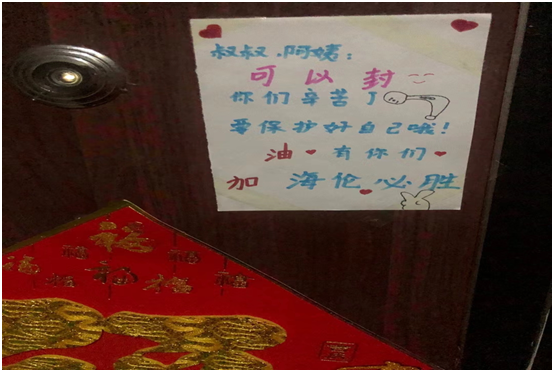 叔叔、阿姨：
可以封
你们辛苦了
要保护好自己哦！
油 有你们
加 海伦必胜
福
福
福
福
福
福